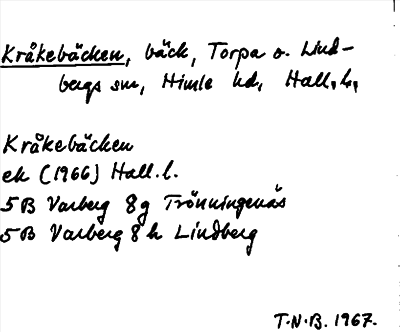 Kråkebäcken, bäck, Torpa o. Lind-
bergs sn, Himle hd, Hall. l.,
Kråkebäcken
ek (1966) Hall. l.
5B Varberg 8g Trönningenäs
5B Varberg 8h Lindberg
T.N.B. 1967.